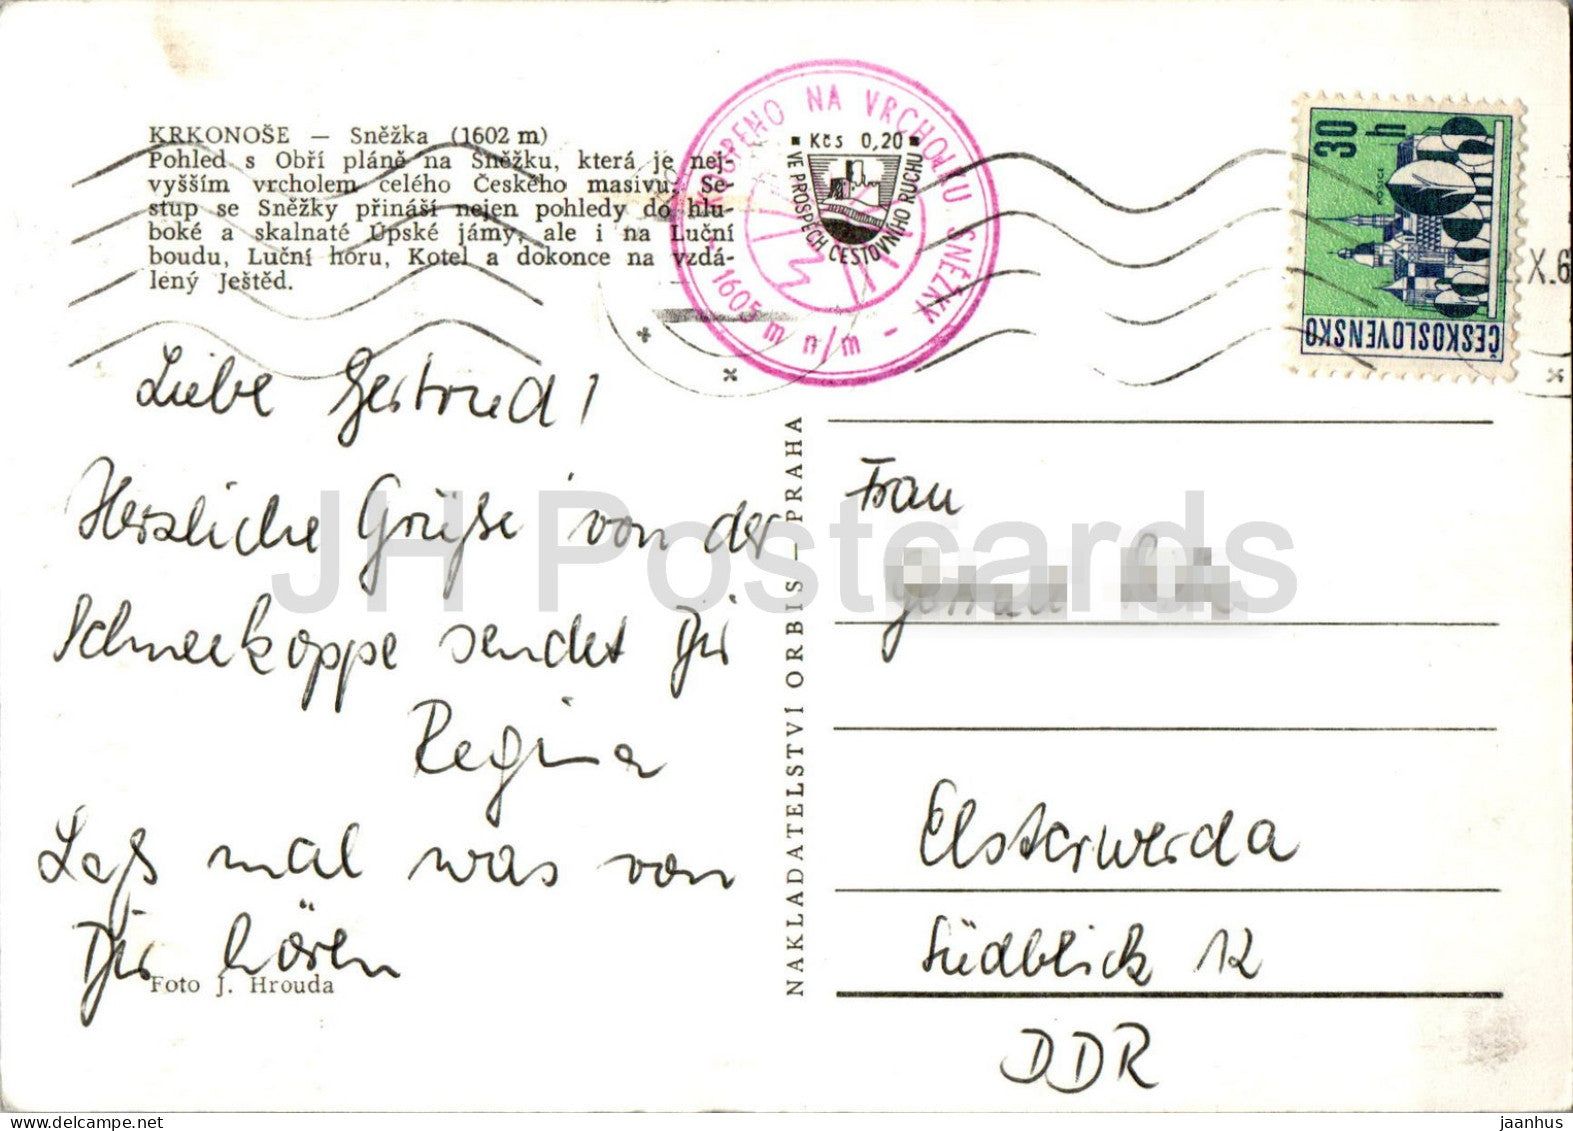 KRKONOŠE — Sněžka (1602 m)
Pohled s Obří pláně na Sněžku, která je nej-
vyšším vrcholem celého Českého masivu. Se-
stup se Sněžky přináší nejen pohledy do hlu-
boké a skalnaté Úpské jámy, ale i na Luční
boudu, Luční horu, Kotel a dokonce na vzdá-
lený Ještěd.
KOUPENO NA VRCHOLKU SNĚŽKY
- 1605 m n/m -
Kčs 0,20
VE PROSPĚCH CESTOVNÍHO RUCHU
30 h
KOŠICE
ČESKOSLOVENSKO
X.6
Liebe Gertrud!
Herzliche Grüße von der
Schneekoppe sendet Dir
Regina
Laß mal was von
Dir hören
Foto J. Hrouda
NAKLADATELSTVÍ ORBIS — PRAHA
Frau
Elsterwerda
Südblick 12
DDR
JH Postcards
jaanhus